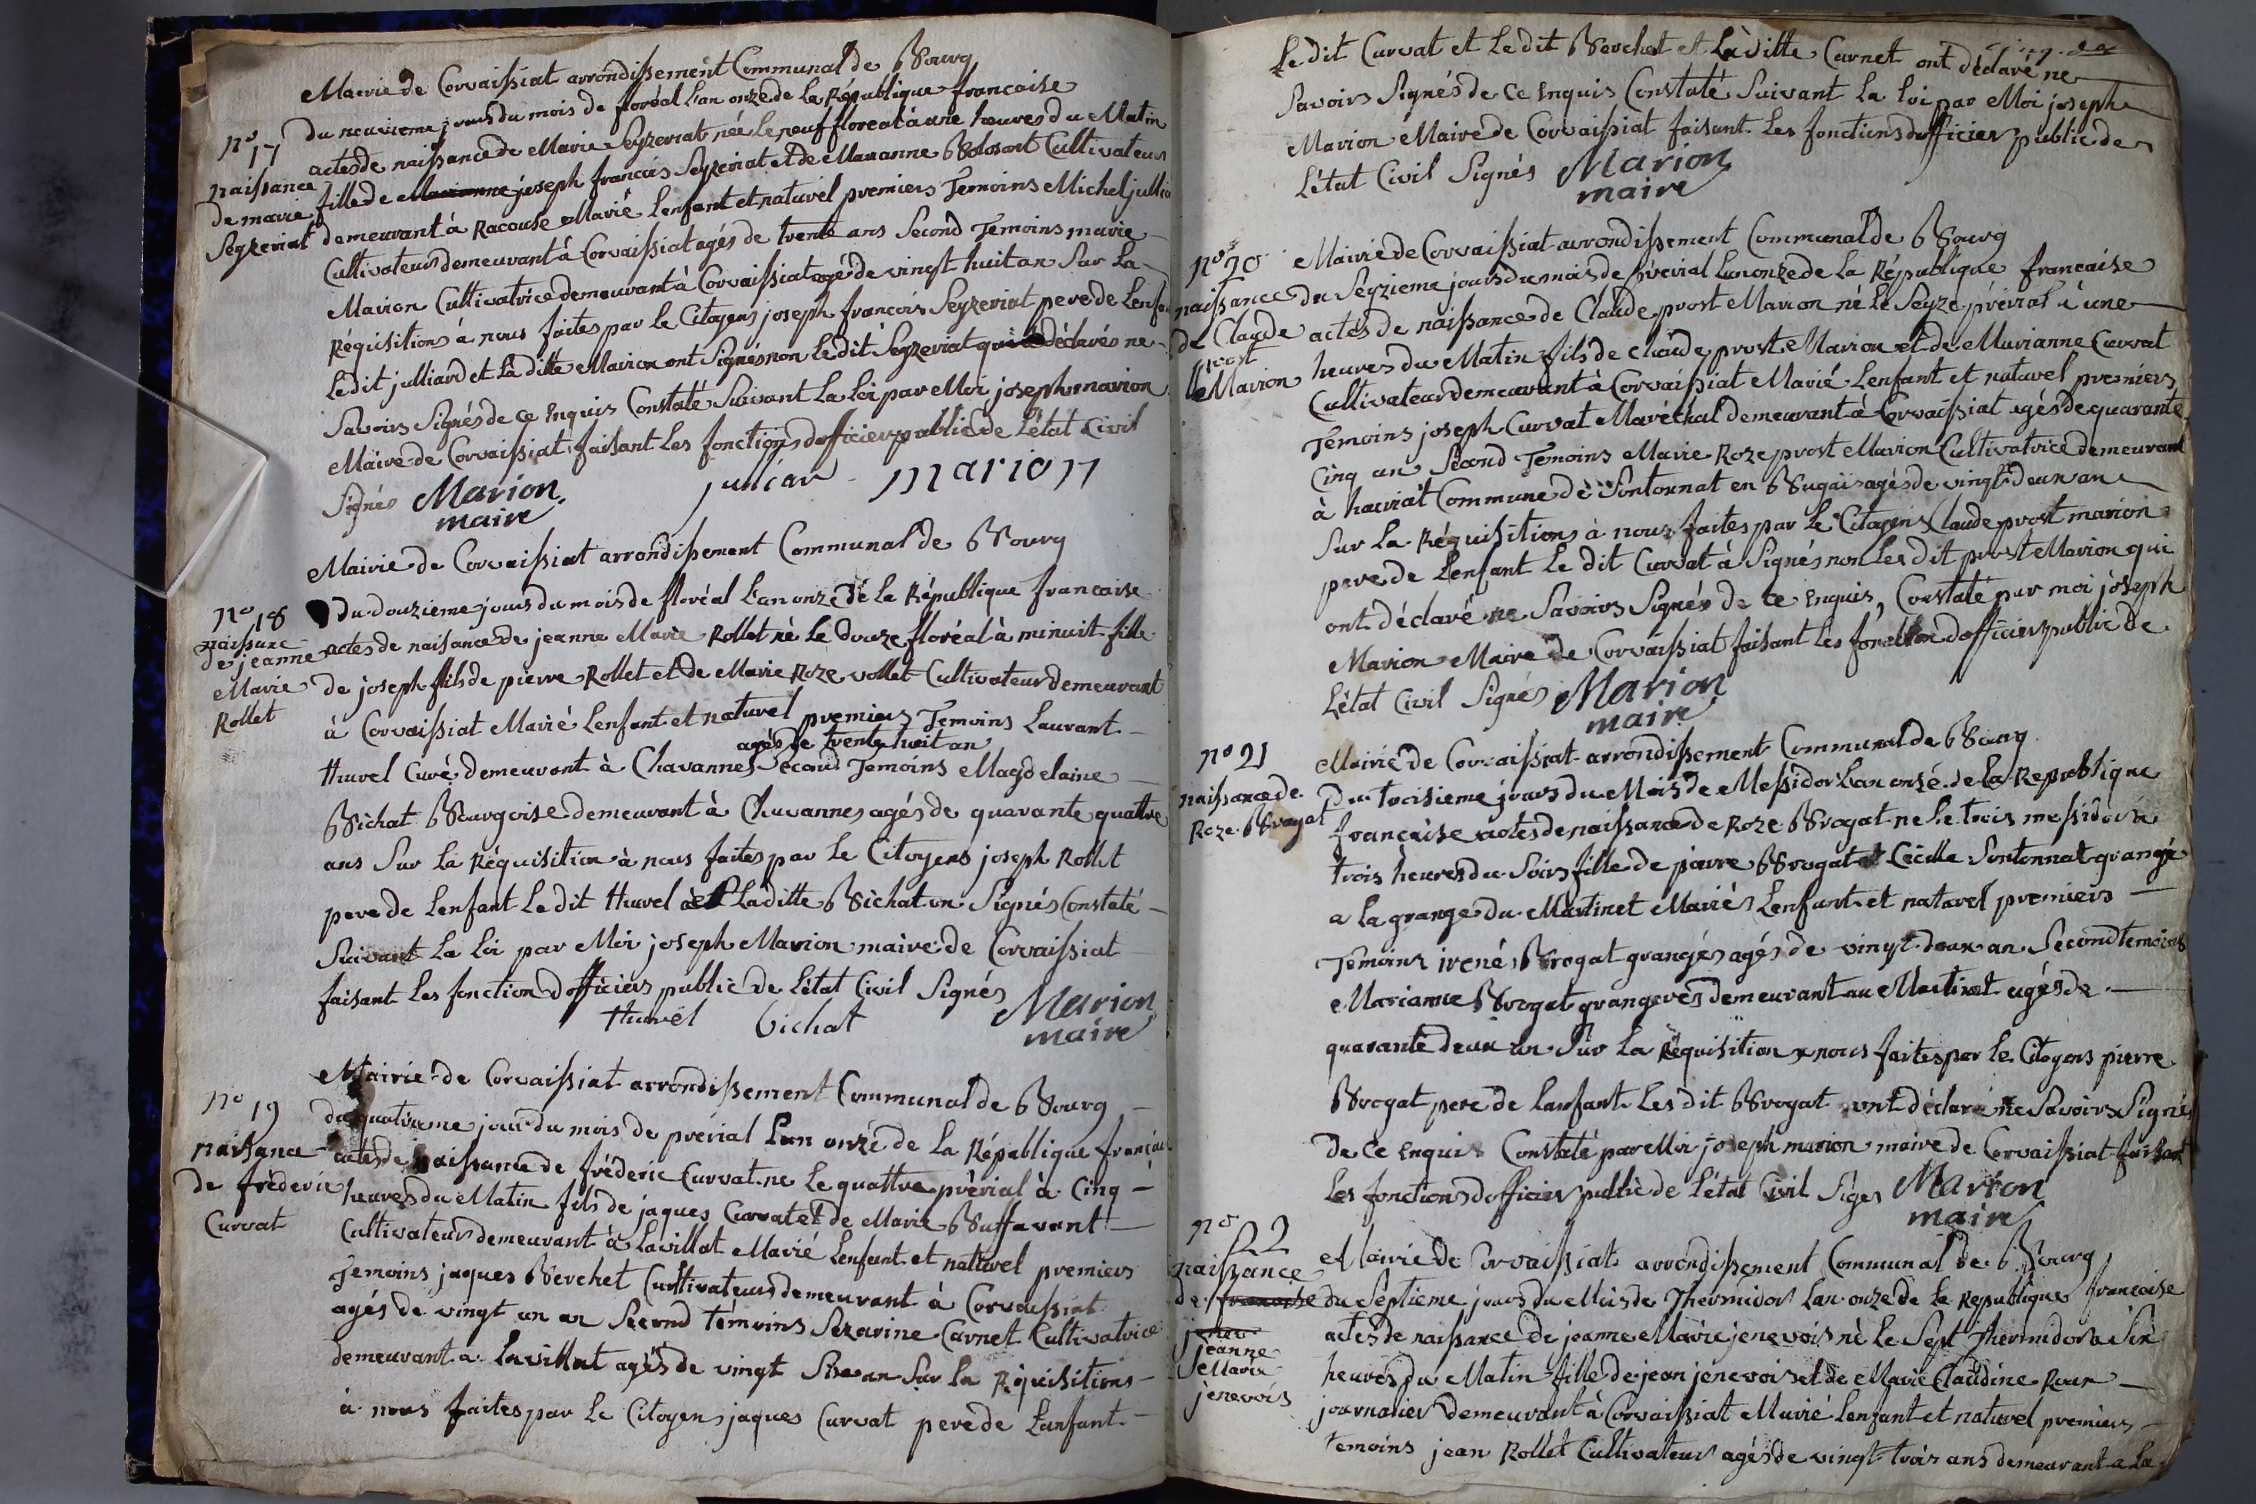 Mairie de Corvaissiat arrondissement Communal de Bourg
n° 17
naissance
de marie
Seyzeriat
du neuvieme jours du mois de floréal L'an onze de la République francaise
actes de naissance de Marie Seyzeriat née le neuf floreal à une heures du Matin
fille de Marianne joseph francois Seyzeriat et de Marianne Cultivateur
demeurant à Racouse Marié Lenfant et naturel premiers Temoins Michel jullia
Cultivateur demeurant à Corvaissiat agés de trente ans Second Temoins marie
Marion Cultivatrice demeurant à Corvaissiat agé de vingt huit an Sur La
Réquisitions à nous faites par le Citoyens joseph francois Seyzeriat pere de Lenfa
Ledit julliard et La ditte Marion ont Signés non ledit Seyzeriat qui a déclarés ne
Savoirs Signés de ce Enquis Constaté Suivant La Loi par Moi joseph marion
Maire de Corvaissiat faisant Les fonctions dofficier public de L'état Civil
Signés Marion maire juliar marion
Mairie de Corvaissiat arrondissement Communal de Bourg
n° 18
naissanc
de jeanne
Marie
Rollet
Du douzieme jours du mois de floréal L'an onze de la République francaise
actes de naisance de jeanne Marie Rollet né le douze floréal à minuit fille
de joseph fils de pierre Rollet et de Marie Roze vollet Cultivateur demeurant
à Corvaissiat Marié Lenfant et naturel premiers Temoins Laurant
agés de trente huit an
Huvel Curé demeurant à Chavannes Second Temoins Magdelaine
Bichat Bourgoise demeurant à Chavannes agés de quarante quattre
ans Sur La Réquisition à nous faites par le Citoyens joseph Rollet
pere de Lenfant Le dit Huvel et Laditte Bichat on Signés Constaté
Suivant La Loi par Moi joseph Marion maire de Corvaissiat
faisant Les fonction dofficiers public de L'état Civil Signés
Huvel bichat Marion maire
Mairie de Corvaissiat arrondissement Communal de Bourg
n° 19
naisance
de fréderic
Curvat
du quatrieme jour du mois de prérial Lan onze de La République françai
actes de naissance de fréderic Curvat ne le quattre prérial à Cinq
heures du Matin fils de jaques Curvat et de Marie Buffavent
Cultivateur demeurant à Lavillat Marié Lenfant et naturel premiers
Temoins jaques Berchet Cultivateurs demeurant à Corvaissiat
agés de vingt un an Second témoins Sezarine Carnet Cultivatrice
demeurant a Lavillat agés de vingt an Sur La Réquisitions
à nous faites par le Citoyens jaques Curvat pere de Lanfant
Le dit Curvat et Le dit Berchet et La ditte Carnet ont déclaré ne
Savoirs Signés de ce Enquis Constaté Suivant La Loi par Moi joseph
Marion Maire de Corvaissiat faisant Les fonctions dofficier public de
L'état Civil Signés Marion maire
n° 20
naissance
de Claude
prost
Marion
Mairie de Corvaissiat arrondissement Communal de Bourg
du Seyzieme jours du mois de prérial Lan onze de La République francaise
actes de naissance de Claude prost Marion né le Seyze prérial à une
heures du Matin fils de Claude prost Marion et de Marianne Curvat
Cultivateur demeurant à Corvaissiat Marié Lenfant et naturel premiers
Temoins joseph Curvat Maréchal demeurant à Corvaissiat agés de quarante
Cinq an Second Temoins Marie Roze prost Marion Cultivatrice demeurant
à hauriat Commune de Sontonnat en Bugai agés de vingt deux an
Sur La Réquisitions à nous faites par le Citoyens Claude prost marion
pere de Lenfant Le dit Curvat à Signés non Les dit prost Marion qui
ont déclaré ne Savoirs Signés de Ce Enquis, Constaté par moi joseph
Marion Maire de Corvaissiat faisant Les fonction dofficier public de
L'état Civil Signés Marion maire
n° 21
naissance de
Roze Brogat
Mairie de Corvaissiat arrondissement Communal de Bourg
Du troisieme jours du Mois de Messidor Lan onze de La République
française actes de naissance de Roze Brogat ne le trois messidor à
trois heures du Soirs fille de pierre Brogat et Cécille Sontonnat grangé
a La grange du Martinet Mariés Lenfant et naturel premiers
Temoins irené Brogat grangés agés de vingt deux an Second temoins
Marianne Brogat grangeres demeurant au Martinet agés de
quarante deux an Sur La Réquisition a nous faites par le Citoyens pierre
Brogat pere de Lanfant Les dit Brogat ont déclaré ne Savoirs Signé
de Ce Enquis Constaté par Moi joseph marion maire de Corvaissiat faisant
Les fonctions dofficier public de L'état Civil Siges Marion maire
n° 22
naissance
de francoise
jenev
jeanne
Marie
jenevois
Mairie de Corvaissiat arrondissement Communal de Bourg
du Séptieme jours du Mois de Thermidor Lan onze de La Republique francaise
actes de naissance de jeanne Marie jenevois né le Sept Thermidor à Six
heures du Matin fille de jean jenevois et de Marie Claudine
journalier demeurant à Corvaissiat Marié Lenfant et naturel premiers
temoins jean Rollet Cultivateur agés de vingt trois ans demeurant a La